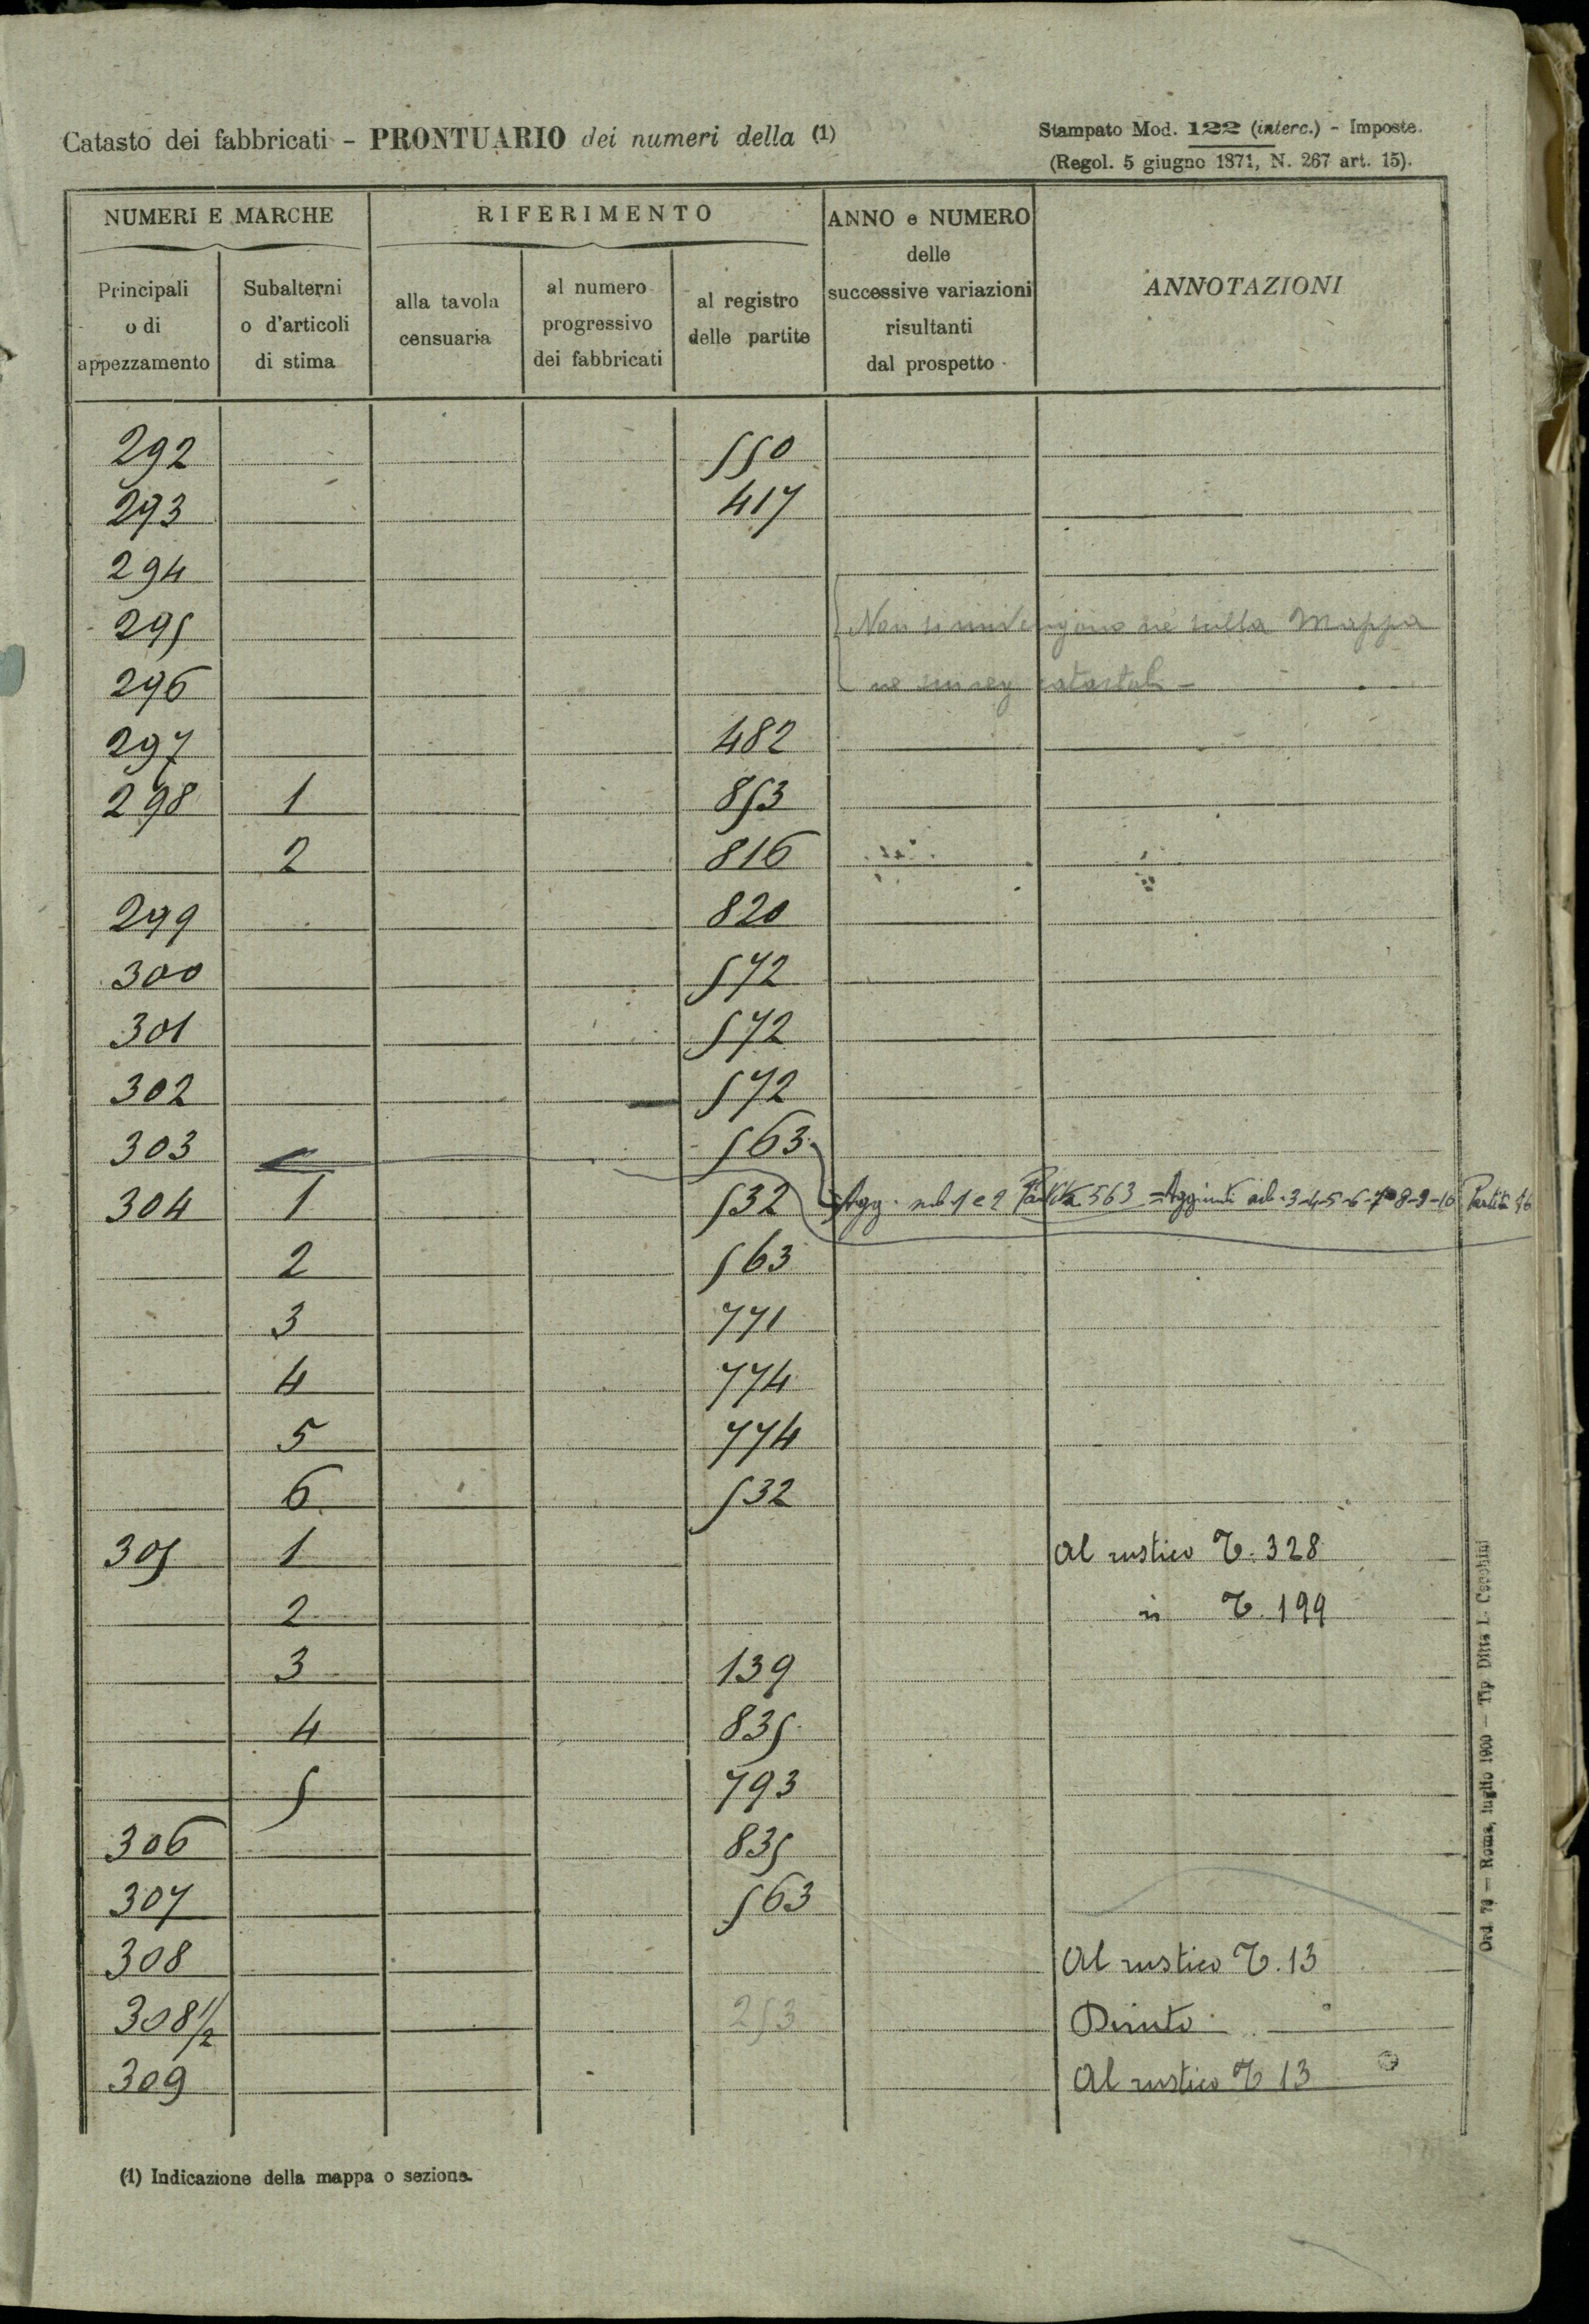 Catasto dei fabbricati - PRONTUARIO dei numeri della (1)
Stampato Mod. 122 (interc.) - Imposte.
(Regol. 5 giugno 1871, N. 267 art. 15).
NUMERI E MARCHE
RIFERIMENTO
ANNO e NUMERO
delle
successive variazioni
risultanti
dal prospetto
ANNOTAZIONI
Principali
o di
appezzamento
Subalterni
o d'articoli
di stima
alla tavola
censuaria
al numero
progressivo
dei fabbricati
al registro
delle partite
292 550
293 417
294
295 Non si rinvengono nè sulla Mappa
296 ne catastali -
297 482
298 1 853
2 816
299 820
300 572
301 572
302 572
303 563
304 1 532 Agg. sub 1 e 2 Partita 563 = Aggiunti sub. 3-4-5-6-7-8-9-10 Partita
2 563
3 771
4 774
5 774
6 532
305 1 Al rustico T. 328
2 " T. 199
3 139
4 835
5 793
306 835
307 563
308 Al rustico T. 13
308 1/2 253 Diruto
309 Al rustico T 13
(1) Indicazione della mappa o sezione.
Ord. 79 — Roma, luglio 1900 — Tip Ditta L. Cecchini